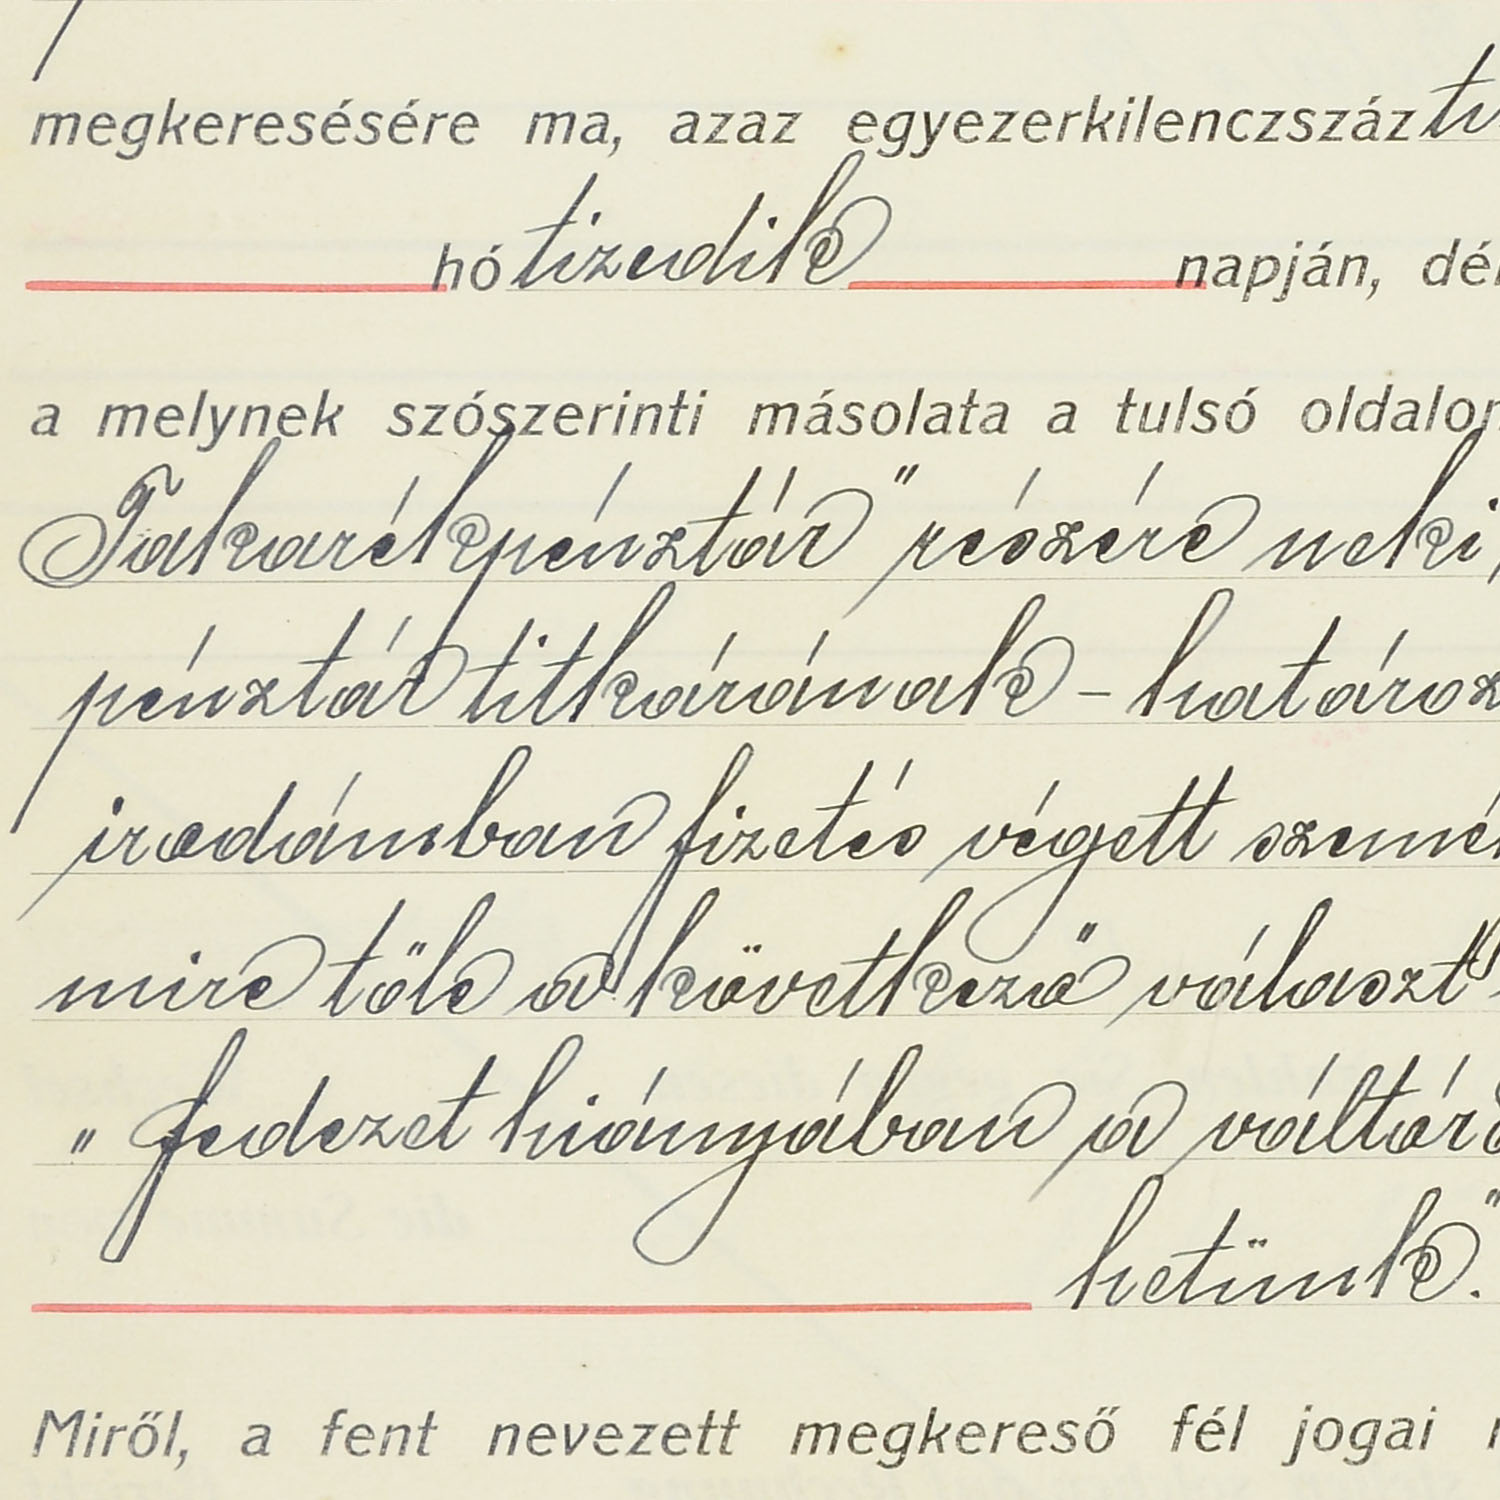 megkeresésére ma, azaz egyezerkilenczszáz
hó tizedik napján,
a melynek szószerinti másolata a tulsó oldalon
Takarékpénztár" részére neki,
pénztár titkárának - határoz
irodámban fizetés végett szemé
mire tőle a következő választ
„ fedezet hiányában a váltót
hetünk".
Miről, a fent nevezett megkereső fél jogai